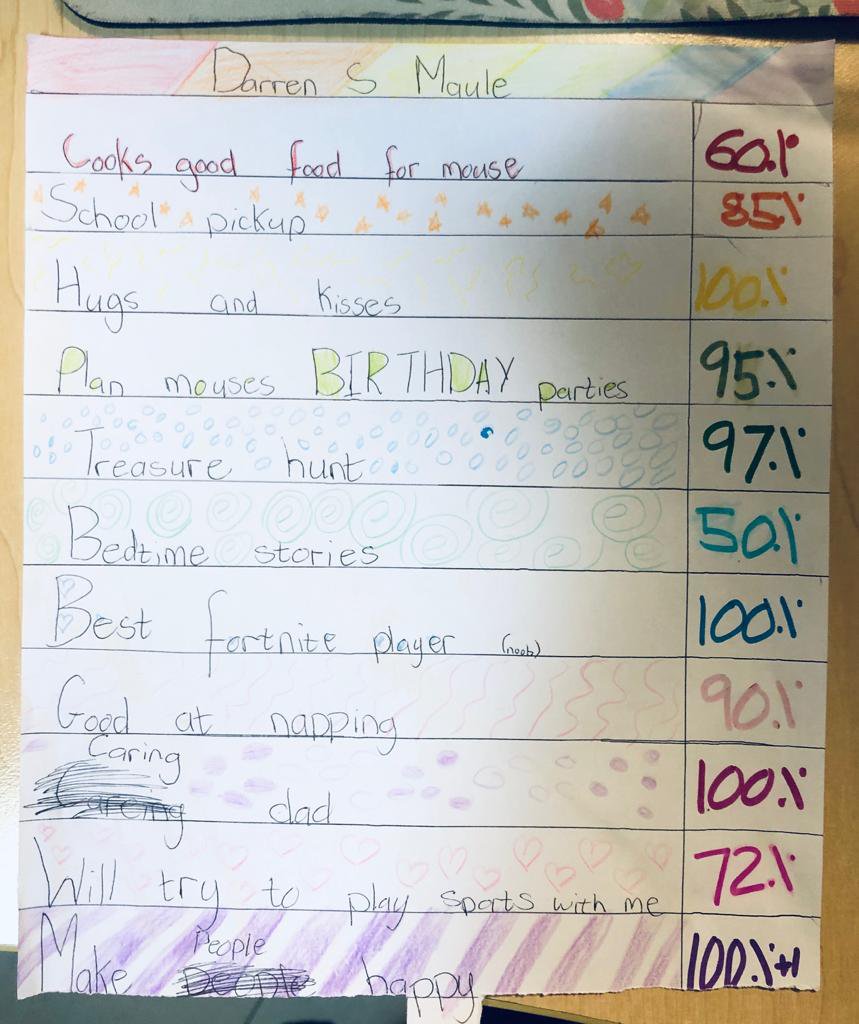 Darren S Maule
Cooks good food for mouse 60%
School pickup 85%
Hugs and kisses 100%
Plan mouses BIRTHDAY parties 95%
Treasure hunt 97%
Bedtime stories 50%
Best fortnite player (noob) 100%
Good at napping 90%
Caring dad 100%
Will try to play sports with me 72%
Make People happy 100%+1